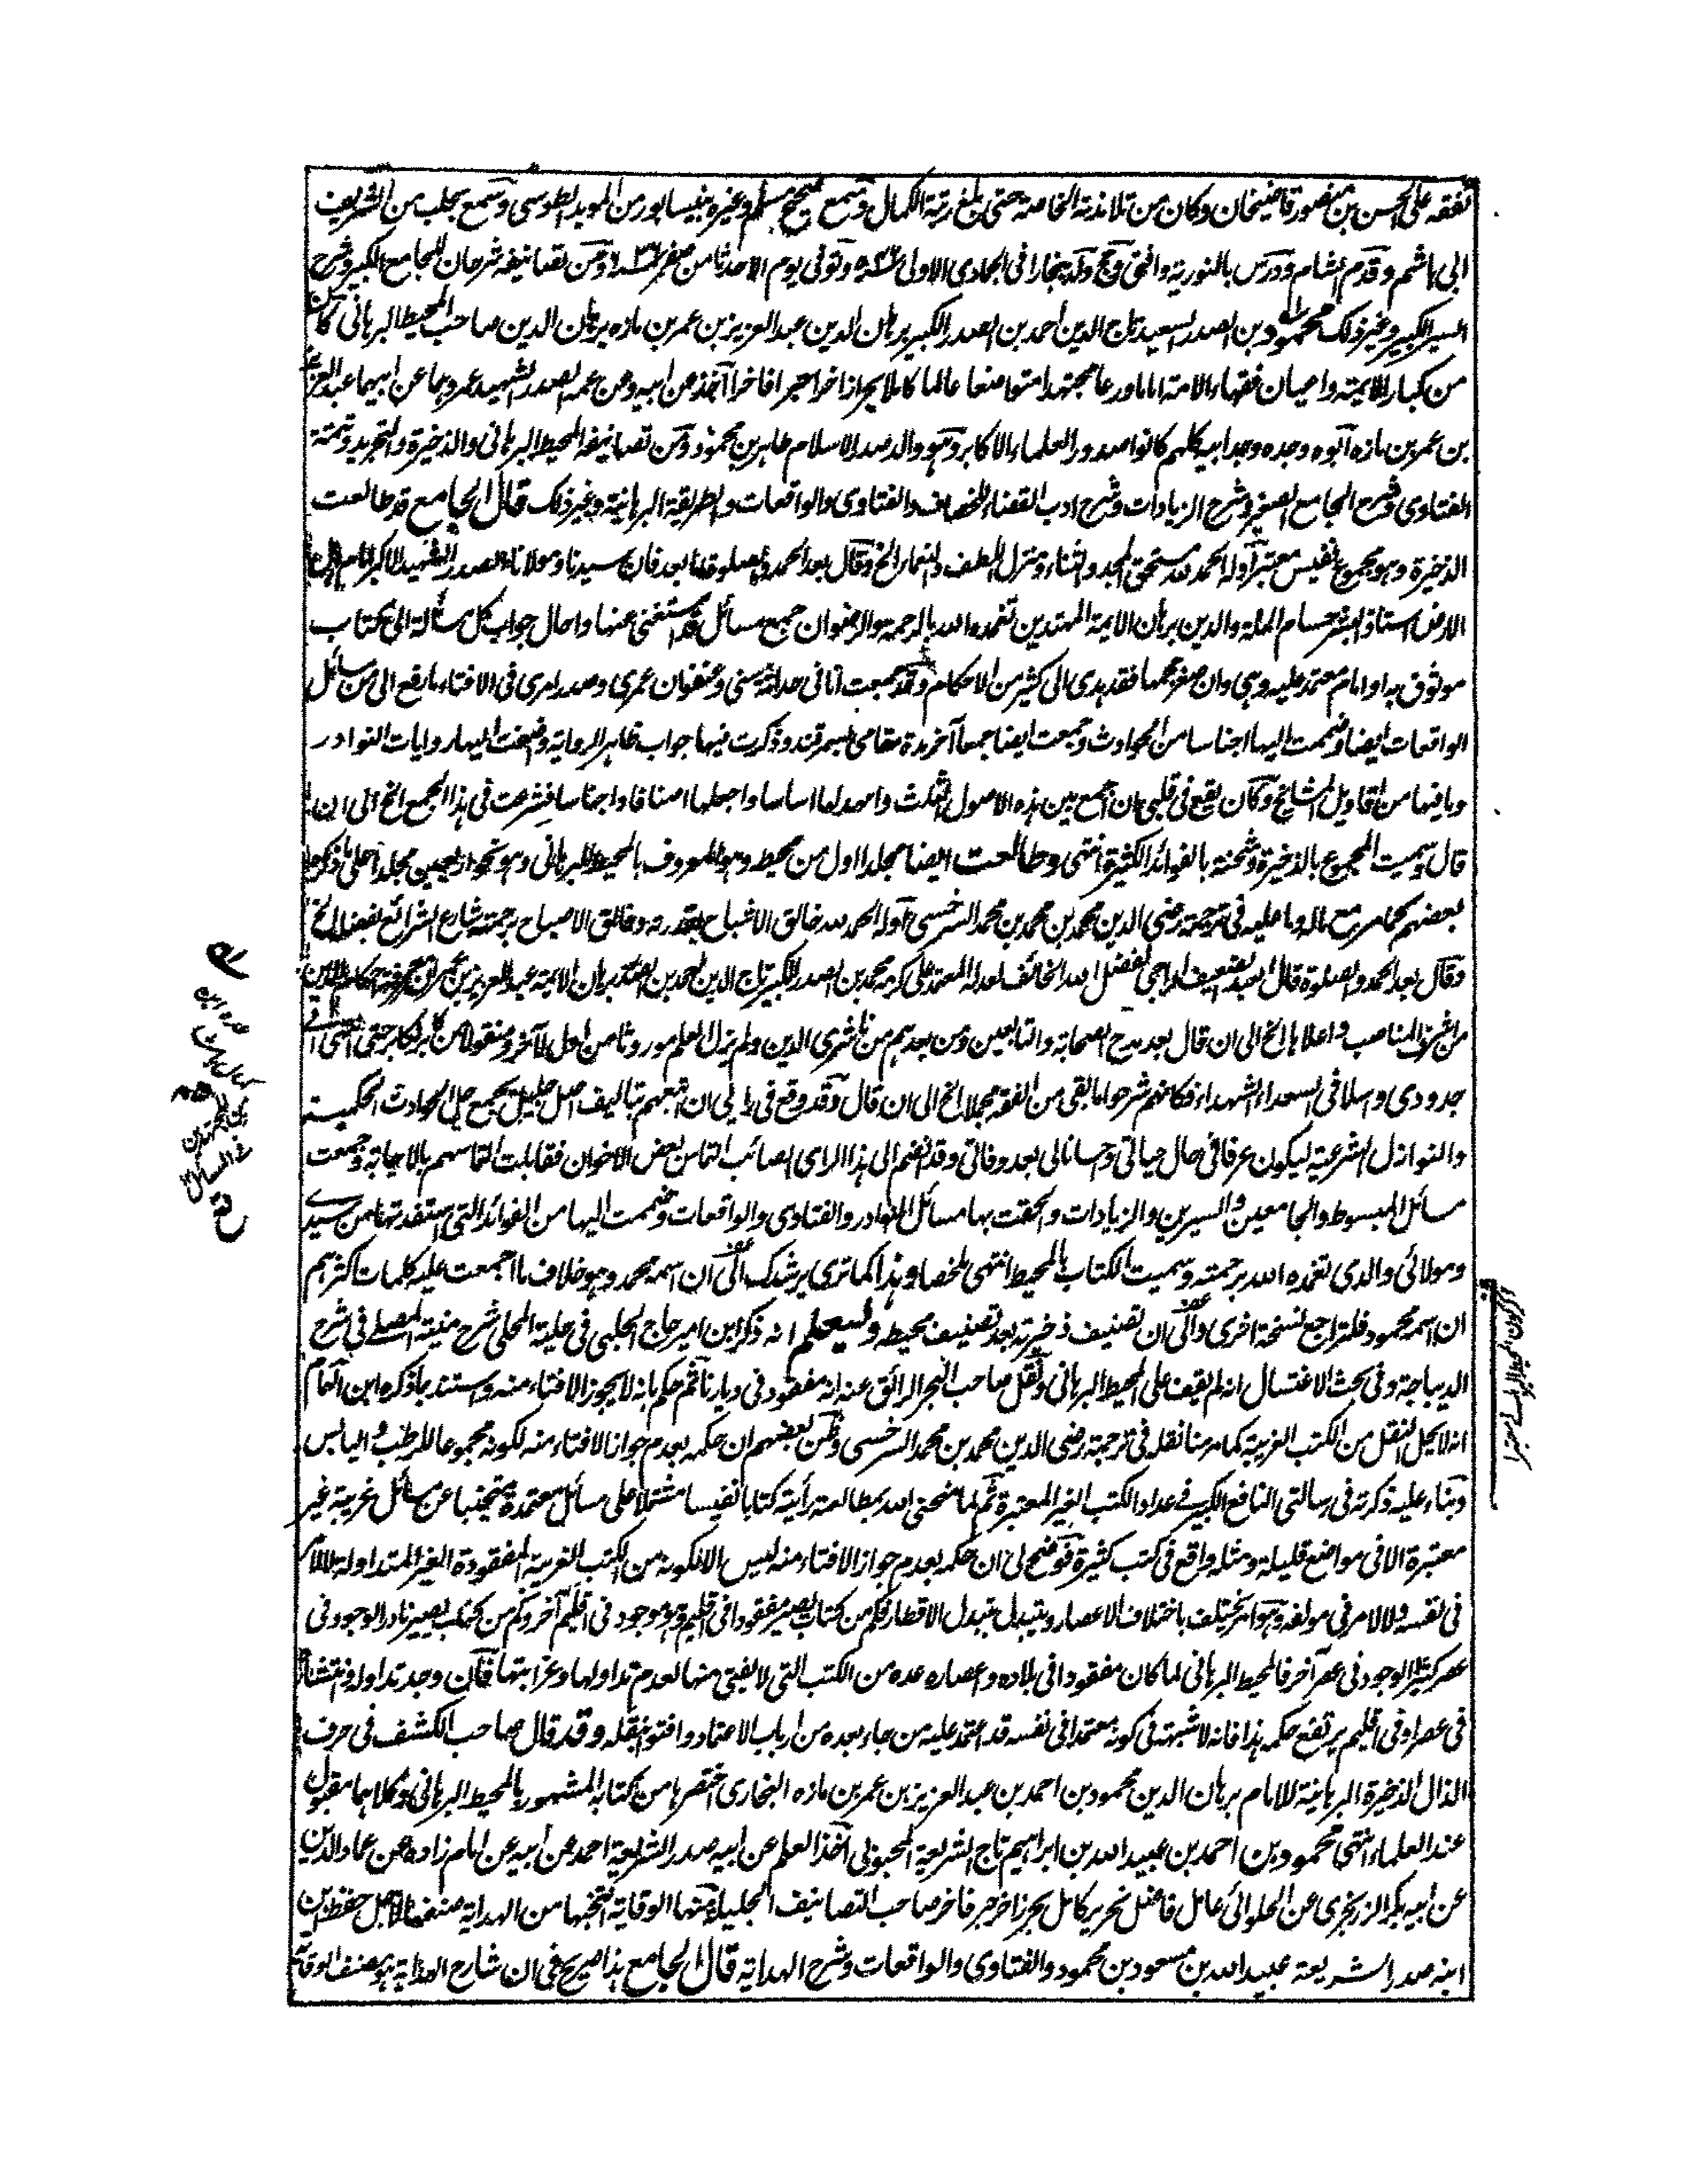 تفقه على الحسن بن منصور قاضيخان وكان من تلامذته الخاصة حتى بلغ رتبة الكمال وسمع صحيح مسلم وغيره بنيسابور من المويد الطوسى وسمع بحلب من الشريف
ابى هاشم وقدم الشام ودرس بالنورية وافتى وحج ولد ببخارا فى الجمادى الاولى وتوفى يوم الاحد ثامن صفر ومن تصانيفه شرحان للجامع الكبير وشرح
السير الكبير وغير ذلك محمود بن الصدر السعيد تاج الدين احمد بن الصدر الكبير برهان الدين عبد العزيز بن عمر بن مازه برهان الدين صاحب المحيط البرهانى كان
من كبار الائمة واعيان فقهاء الامة اماما ورعا مجتهدا متواضعا عالما كاملا بحرا زاخرا حبرا فاخرا آخذ عن ابيه وعن عمه الصدر الشهيد عمر وهما عن ابيهما عبد العزيز
بن عمر بن مازه آبوه وجده وجد ابيه كلهم كانوا صدور العلماء الاكابر وهو والد صدر الاسلام طاهر بن محمود ومن تصانيفه المحيط البرهانى والذخيرة والتجريد وتتمة
الفتاوى وشرح الجامع الصغير وشرح الزيادات وشرح ادب القضاء للخصاف والفتاوى والواقعات والطريقة البرهانية وغير ذلك قال الجامع قد طالعت
الذخيرة وهو مجموع نفيس معتبر آوله الحمد لله مستحق الحمد والثناء ومنزل اللطف والنعماء الخ وقال بعد الحمد والصلوة اما بعد فان سيدنا ومولانا الصدر الشهيد الاكبر امام
الارض استاذ البشر حسام الملة والدين برهان الايمة المهتدين تغمده الله بالرحمة والرضوان جمع مسائل قد استفتى عنها واحال جواب كل مسألة الى كتاب
موثوق به او امام معتمد عليه وهى وان صغر حجمها فقد يهدى الى كثير من الاحكام وقد جمعت آنا فى حداثة سنى وعنفوان عمرى وصدر امرى فى الافتاء ما رفع الى من مسائل
الواقعات ايضا وضممت اليها اجناسا من الحوادث وجمعت ايضا جمعا آخر مدة مقامى بسمرقند وذكرت فيها جواب ظاهر الرواية واضفت اليها روايات النوادر
وما فيها من اقاويل المشايخ وكان يقع فى قلبى ان آجمع بين هذه الاصول الثلث وامهد لها اساسا واجعلها اصنافا واجناسا فشرعت فى هذا الجمع الخ الى ان
قال وسميت المجموع بالذخيرة وشحنته بالفوائد الكثيرة انتهى وطالعت ايضا مجلدا اول من محيطه وهو المعروف بالمحيط البرهانى وهو نحو اربعين مجلدا على ما ذكره
بعضهم كما مر مع ماله وما عليه فى ترجمة رضى الدين محمد بن محمد بن محمد السرخسى آوله الحمد لله خالق الاشباح بقدرته وفالق الاصباح برحمته شارع الشرائع بفضله الخ
وقال بعد الحمد والصلوة قال العبد الضعيف الراجى لفضل الله الخائف لعدله المعتمد على كرمه محمد بن الصدر الكبير تاج الدين احمد بن الصدر برهان الايمة عبد العزيز بن عمر
من اشرف المناصب واعلاها الخ الى ان قال بعد مدح الصحابة والتابعين ومن بعدهم من ناشرى الدين ولم يزل العلم موروثا من اول لآخر ومنقولا من كابر لكابر حتى انتهى الى
جدودى واسلافى السعداء الشهداء فكانهم شرحوا ما بقى من الفقه مجملا الخ الى ان قال وقد وقع فى رايى ان اتشبه بهم بتاليف اصل جليل يجمع جل الحوادث الحكمية
والنوازل الشرعية ليكون عرفا فى حال حياتى وحسانا لى بعد وفاتى وقد انضم الى هذا الراى الصائب التماس بعض الاخوان فقابلت التماسهم بالاجابة وجمعت
مسائل المبسوط والجامعين والسيرين والزيادات والحقت بها مسائل النوادر والفتاوى والواقعات وضممت اليها من الفوائد التى استفدتها من سيدى
ومولائى والدى تغمده الله برحمته وسميت الكتاب بالمحيط انتهى ملخصا وهذا كما ترى يرشدك الى ان اسمه محمد وهو خلاف ما اجمعت عليه كلمات اكثرهم
ان اسمه محمود فلتراجع نسخة اخرى والى ان تصنيف ذخيرته بعد تصنيف محيطه وليعلم انه ذكر ابن امير حاج الحلبى فى حلية المحلى شرح منية المصلى فى شرح
الديباجة وفى بحث الاغتسال انه لم يقف على المحيط البرهانى ونقل صاحب البحر الرائق عنه انه مفقود فى ديارنا ثم حكم بانه لا يجوز الافتاء منه واستند بما ذكره ابن الهمام
انه لا يحل النقل من الكتب الغريبة كما مر منا نقله فى ترجمة رضى الدين محمد بن محمد السرخسى وظن بعضهم ان حكمه بعدم جواز الافتاء منه لكونه مجموعا للرطب واليابس
وبناء عليه ذكرته فى رسالتى النافع الكبير فى عداد الكتب الغير المعتبرة ثم لما منحنى الله بمطالعته رأيته كتابا نفيسا مشتملا على مسائل معتمدة متجنبا عن مسائل غريبة غير
معتبرة الا فى مواضع قليلة ومثله واقع فى كتب كثيرة فوضح لى ان حكمه بعدم جواز الافتاء منه ليس الا لكونه من الكتب الغريبة المفقودة الغير المتداولة لا لامر
فى نفسه ولا لامر فى مولفه وهو امر يختلف باختلاف الاعصار ويتبدل بتبدل الاقطار فكم من كتاب يصير مفقودا فى اقليم وهو موجود فى اقليم آخر وكم من كتاب يصير نادر الوجود فى
عصر كثير الوجود فى عصر آخر فالمحيط البرهانى لما كان مفقودا فى بلاده واعصاره عده من الكتب التى لا يفتى منها لعدم تداولها وغرابتها فان وجد تداوله وانتشاره
فى عصر او فى اقليم يرتفع حكمه هذا فانه لا شبهة فى كونه معتمدا فى نفسه قد اعتمد عليه من جاء بعده من ارباب الاعتماد وافتوا بنقله وقد قال صاحب الكشف فى حرف
الذال الذخيرة البرهانية للامام برهان الدين محمود بن احمد بن عبد العزيز بن عمر بن مازه البخارى اختصرها من كتابه المشهور بالمحيط البرهانى وكلاهما مقبول
عند العلماء انتهى محمود بن احمد بن عبيد الله بن ابراهيم تاج الشريعة المحبوبى آخذ العلم عن ابيه صدر الشريعة احمد عن ابيه عن امام زاده عن عماد الدين
عن ابيه بكر الزرنجرى عن الحلوائى عالم فاضل نحرير كامل بحر زاخر حبر فاخر صاحب التصانيف الجليلة منها الوقاية انتخبها من الهداية صنفها لاجل حفظ ابن
ابنه صدر الشريعة عبيد الله بن مسعود بن محمود والفتاوى والواقعات وشرح الهداية قال الجامع هذا صريح فى ان شارح الهداية هو مصنف الوقاية